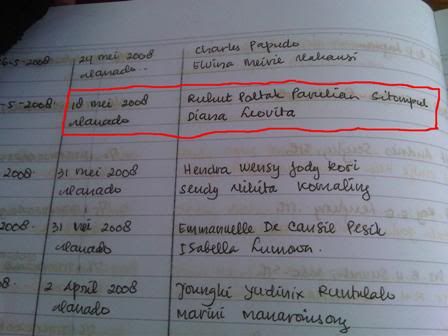 6-5-2008 24 mei 2008 Charles Papudo
Manado.. Elvina Meivie Makausi
-5-2008 18 mei 2008 Ruhut Poltak Parulian Sitompul
Manado Diana Leovita
2008. 31 mei 2008 Hendra Wensy Jody Kori
Manado Sendy Nikita Komaling
2008. 31 Mei 2008 Emmanuelle De Causie Pesik
Manado Isabella Lumoon.
08. 2 April 2008 Youngki Yudinix Runtulalo
Manado Marini Manaroinsong